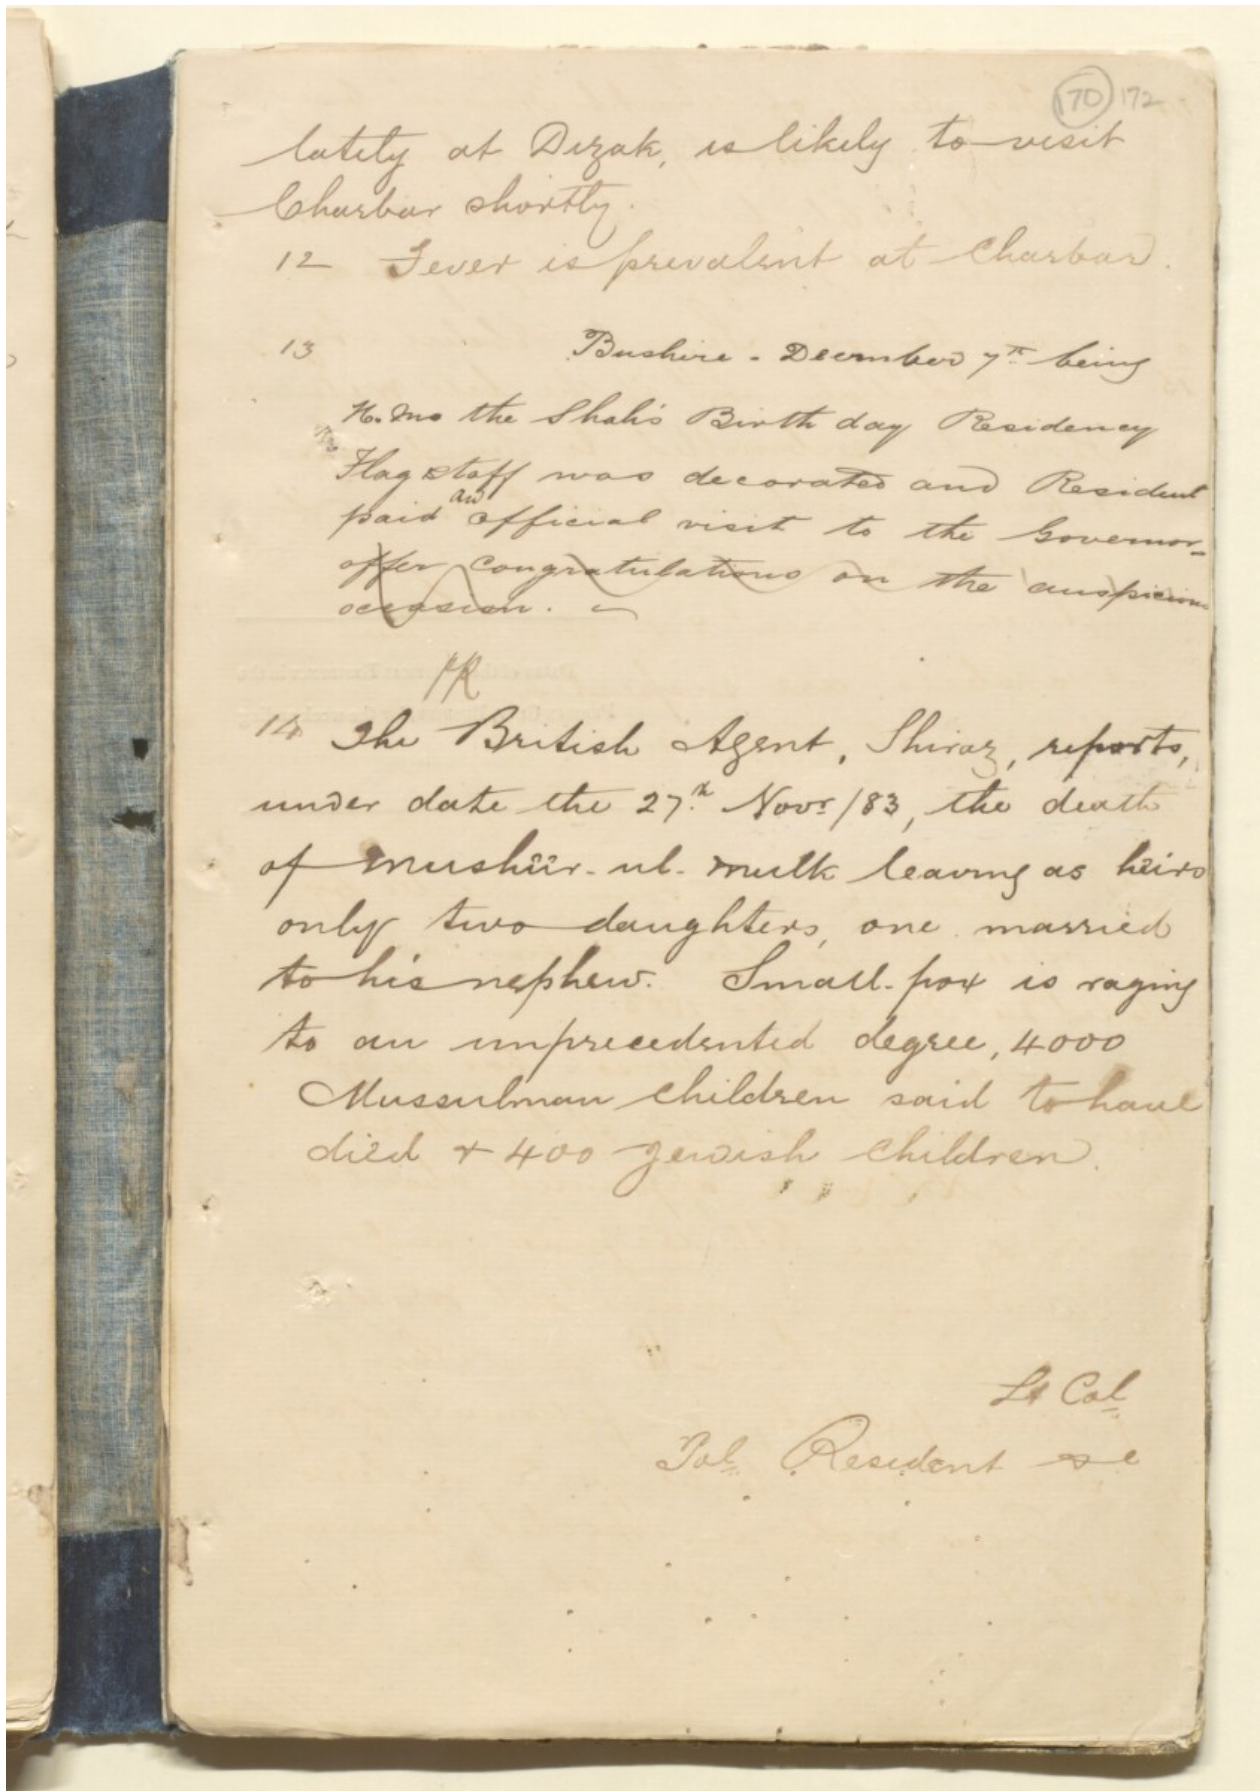 170 172
lately at Dizak, is likely to visit
Charbar shortly.
12 Fever is prevalent at Charbar.
13 Bushire - December 7th being
H. Ms the Shah's Birth day Residency
Flagstaff was decorated and Resident
paid an official visit to the Governor
offer congratulations on the auspicious
occasion.
14 The British Agent, Shiraz, reports,
under date the 27th Novr /83, the death
of Mushîr-ul-Mulk leaving as heirs
only two daughters, one married
to his nephew. Small-pox is raging
to an unprecedented degree, 4000
Mussulman children said to have
died & 400 Jewish children.
Lt Col
Pol Resident